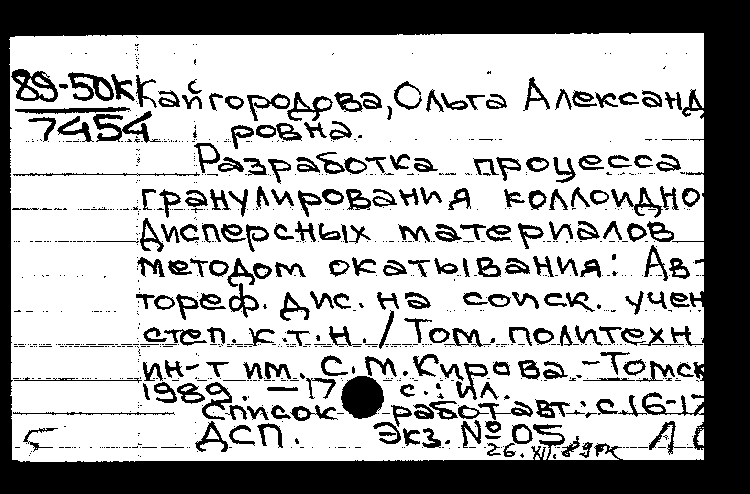 89-50к Кайгородова, Ольга Александ
7454 ровна.
Разработка процесса
гранулирования коллоидно-
дисперсных материалов
методом окатывания: Ав-
тореф. дис. на соиск. учен
степ. к.т.н. / Том. политехн.
ин-т им. С.М.Кирова. -Томск
1989. - 17 с.: ил.
Список работ авт.: с.16-17
5 ДСП. Экз. № 05.
26.XII.89